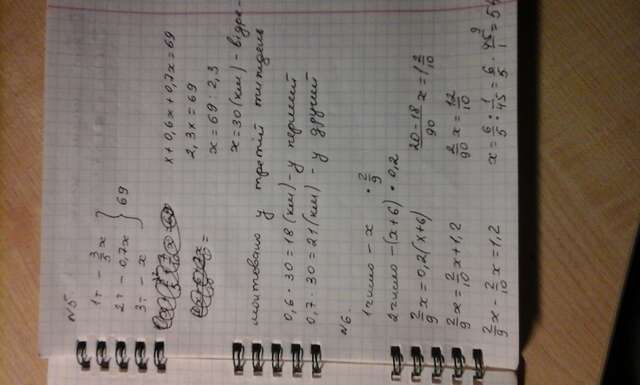 №5.
1т - 3/5 x } 69
2т - 0,7x
3т - x
x + 0,6x + 0,7x = 69
2,3x = 69
x = 69 : 2,3
x = 30 (км) - відре-
монтовано у третій тиждень
0,6 · 30 = 18 (км) - у перший
0,7 · 30 = 21 (км) - у другий
№6.
1 число - x · 2/9
2 число - (x+6) · 0,2
2/9 x = 0,2(x+6)
2/9 x = 2/10 x + 1,2
2/9 x - 2/10 x = 1,2
20-18/90 x = 1 2/10
2/90 x = 12/10
x = 6/5 : 1/45 = 6/5 · 45/1 = 54